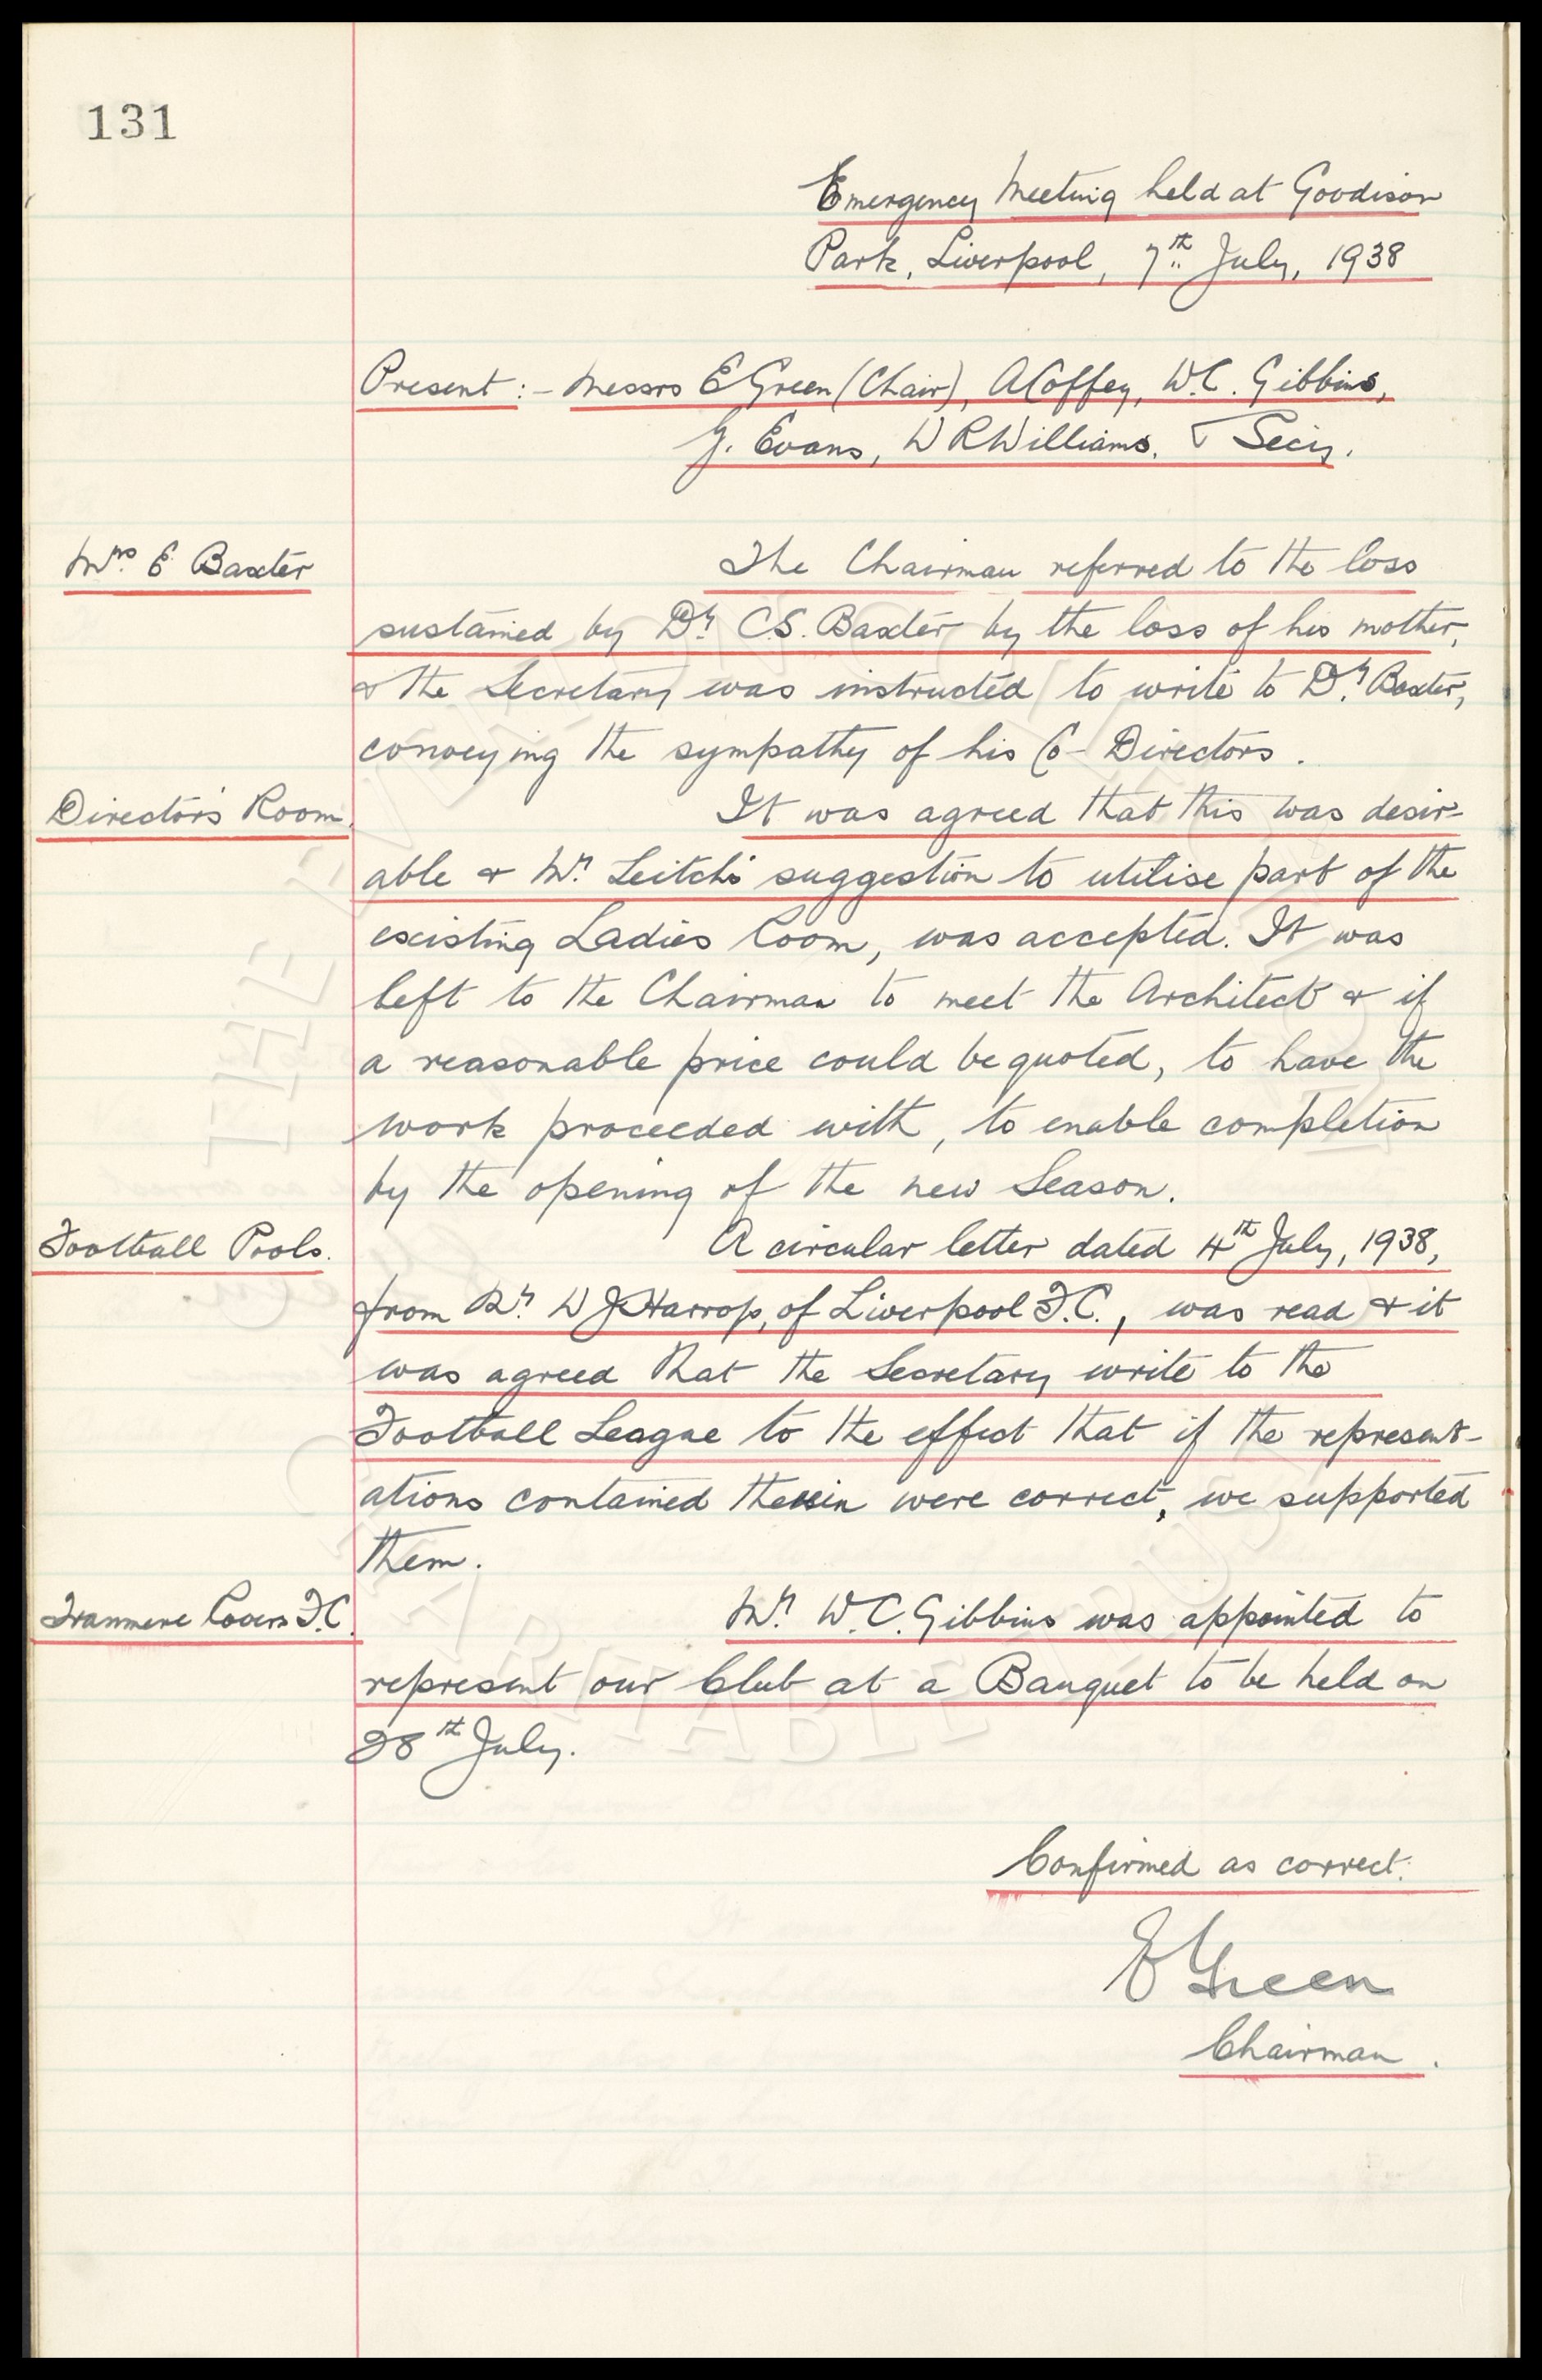 131
Emergency Meeting held at Goodison
Park, Liverpool, 7th July, 1938
Present:- Messrs E Green (Chair), A Coffey, W.C. Gibbins,
G. Evans, W R Williams. & Secy.
Mrs. E Baxter
The Chairman referred to the loss
sustained by Dr. C.S. Baxter by the loss of his mother,
& the Secretary was instructed to write to Dr. Baxter,
conveying the sympathy of his Co-Directors.
Director's Room.
It was agreed that this was desir-
able & Mr. Leitch's suggestion to utilise part of the
existing Ladies Room, was accepted. It was
left to the Chairman to meet the Architect & if
a reasonable price could be quoted, to have the
work proceeded with, to enable completion
by the opening of the new Season.
Football Pools.
A circular letter dated 4th July, 1938,
from Mr. W J Harrop, of Liverpool F.C., was read & it
was agreed that the Secretary write to the
Football League to the effect that if the represent-
ations contained therein were correct, we supported
them.
Tranmere Rovers F.C.
Mr. W.C. Gibbins was appointed to
represent our Club at a Banquet to be held on
28th July.
Confirmed as correct.
E Green
Chairman.